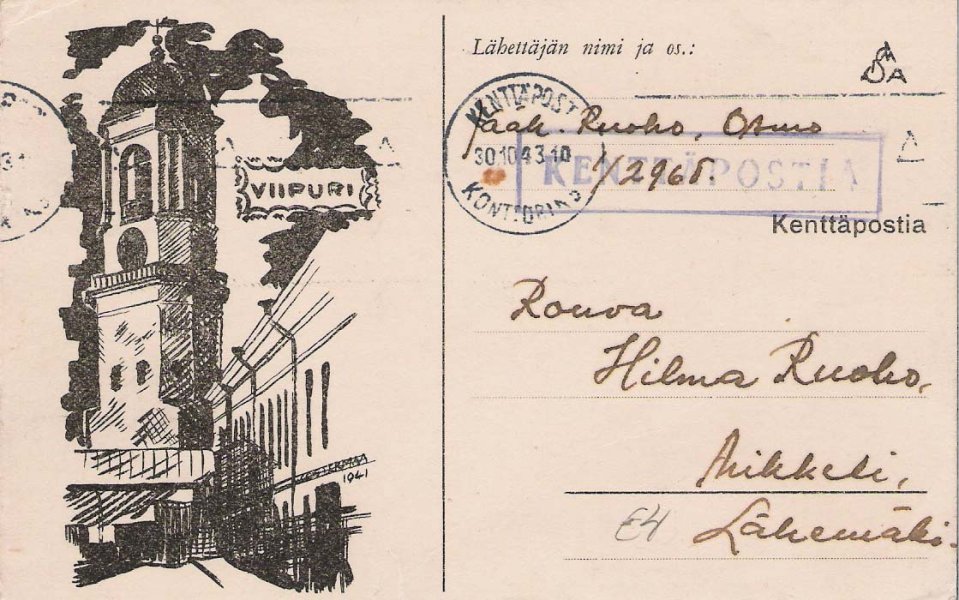 VIIPURI
1941
Lähettäjän nimi ja os.:
SA
KENTTÄPOSTI
30.10.43.10
KONTTORI Nº 3
Ruoho, Osmo
1/2965.
KENTTÄPOSTIA
Kenttäpostia
Rouva
Hilma Ruoho,
Mikkeli,
Lähemäki.
E4